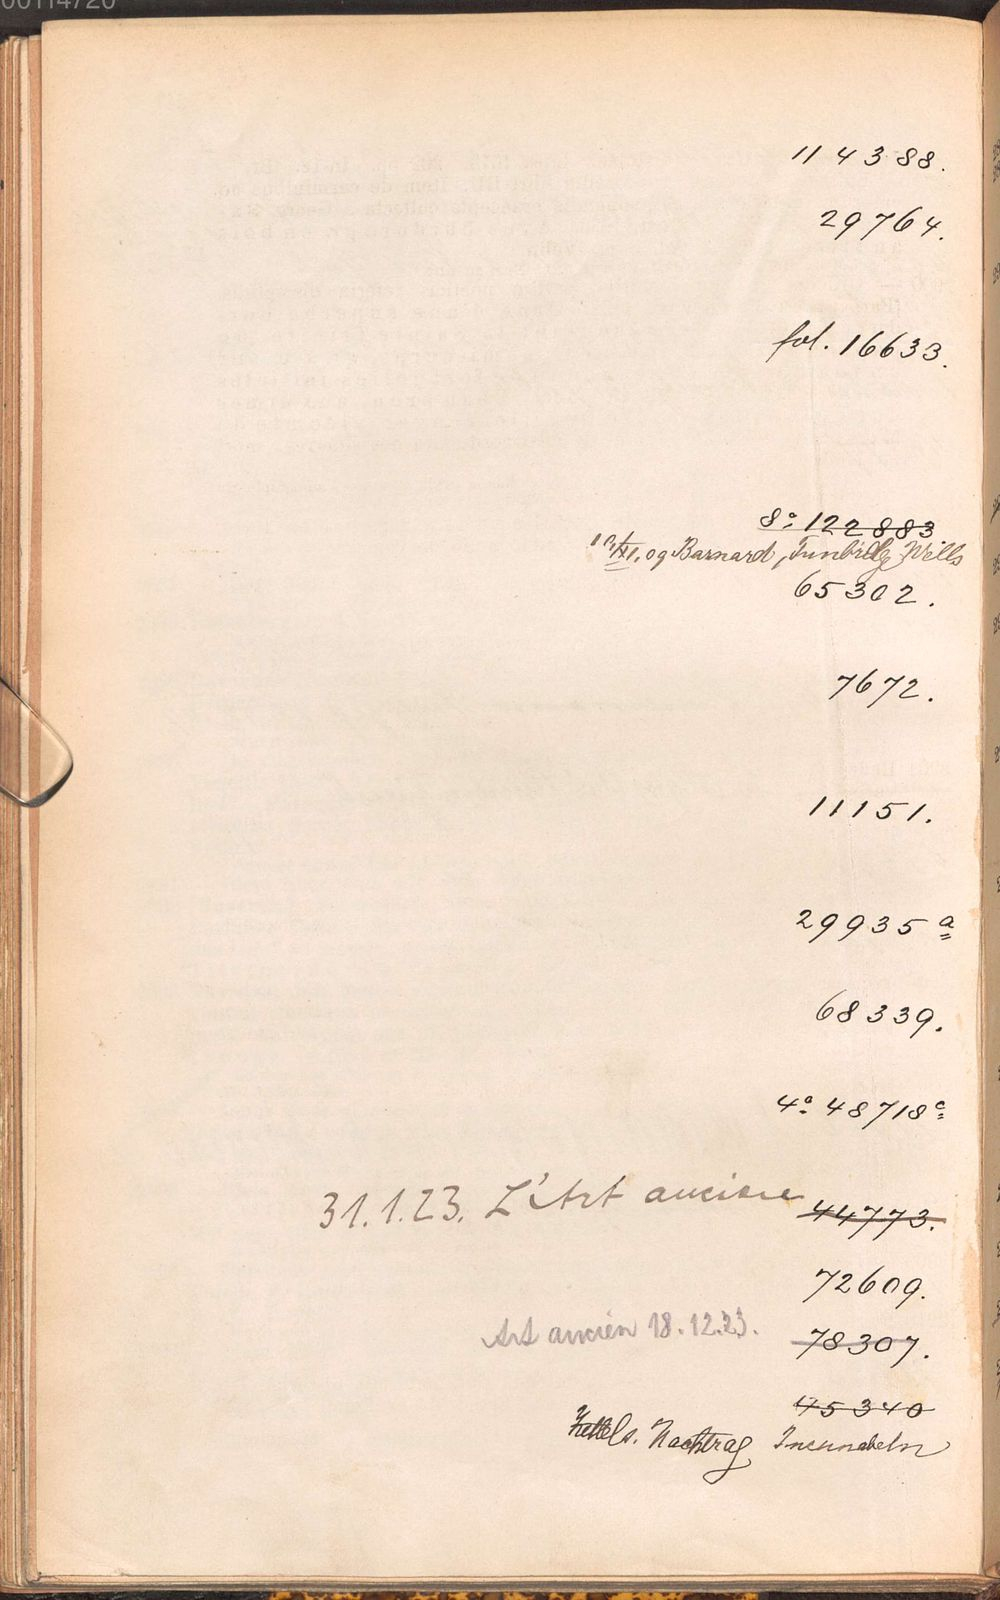 00114720
114388.
29764.
fol. 16633.
8º 122883
og Barnard, Tunbridge Wells
65302.
7672.
11151.
29935 a
68339.
4º 48718 c
31.1.23. L'Art ancien 44773.
72609.
Art ancien 18.12.23. 78307.
45340
Zettel s. Nachtrag Incunabeln